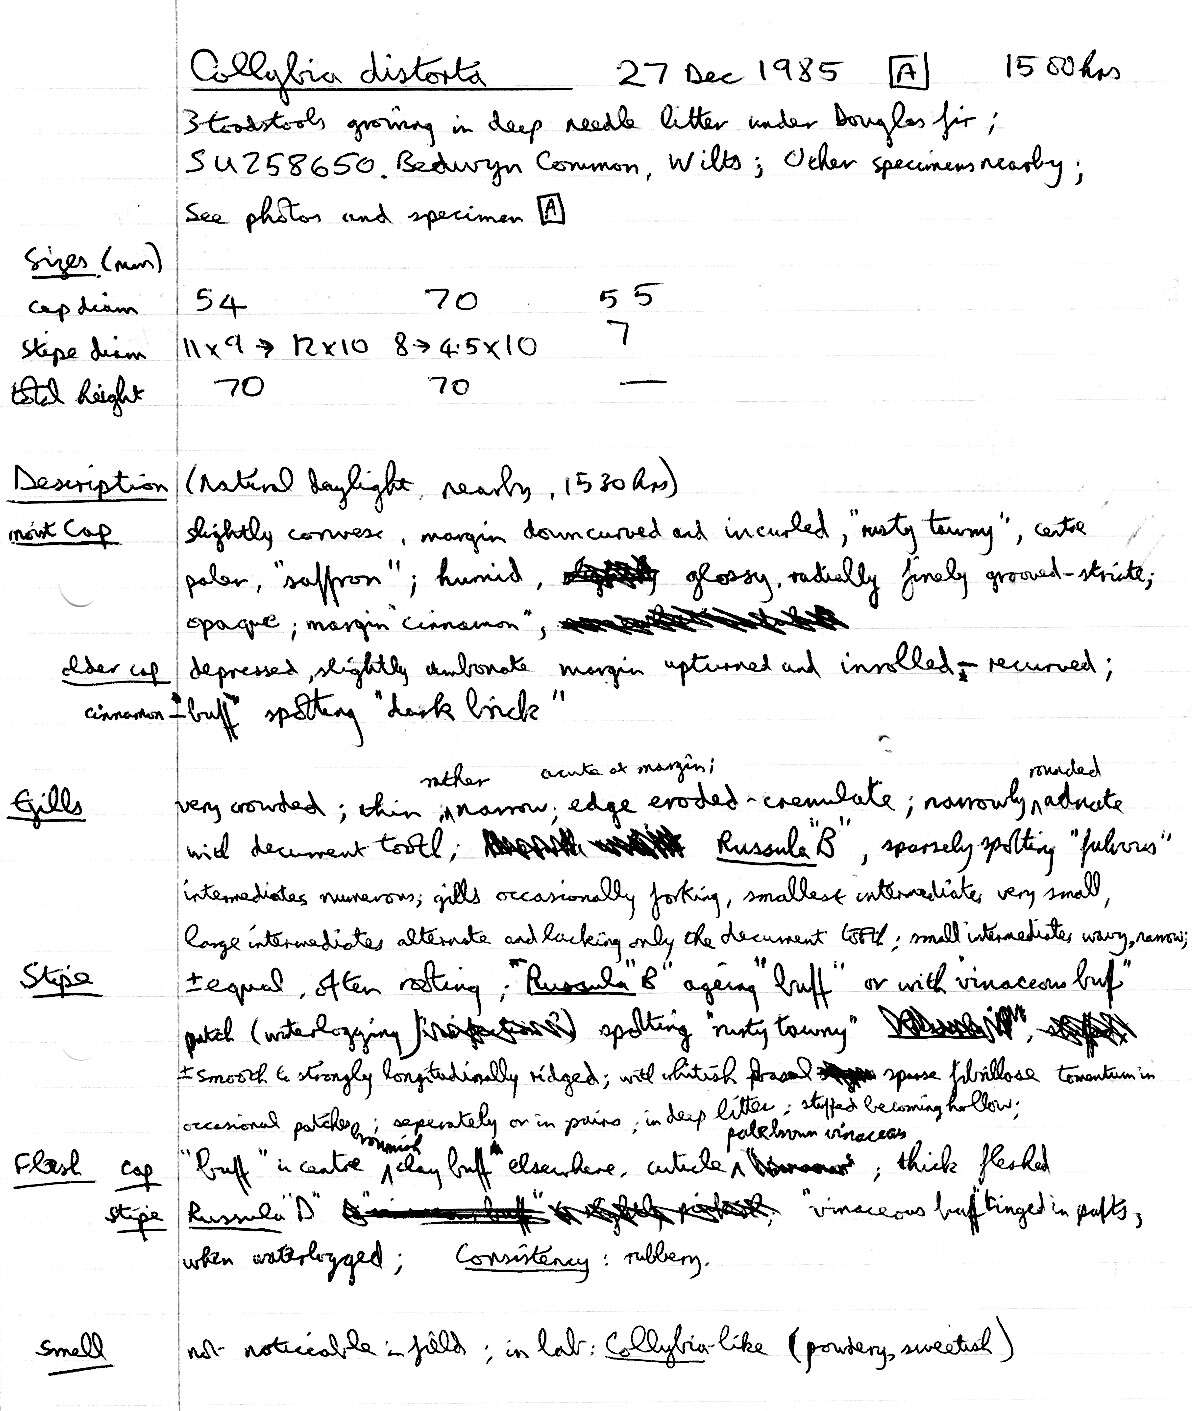 Collybia distorta 27 Dec 1985 A 1500hrs
3 toadstools growing in deep needle litter under Douglas fir;
SU258650. Bedwyn Common, Wilts; Other specimens nearby;
See photos and specimen A
Sizes (mm)
cap diam 54 70 55
Stipe diam 11x9 → 12x10 8→4.5x10 7
total height 70 70 —
Description (Natural daylight, nearby, 1530hrs)
moist Cap slightly convex, margin downcurved and incurled, "rusty tawny", centre
paler, "saffron"; humid, glossy, radially finely grooved-striate;
opaque; margin "cinnamon",
older cap depressed, slightly umbonate margin upturned and inrolled - recurved;
cinnamon - "buff" spotting "dark brick"
rather acute at margin; rounded
Gills very crowded; thin, narrow; edge eroded-crenulate; narrowly adnate
with decurrent tooth; Russula "B", sparsely spotting "fulvous"
intermediates numerous; gills occasionally forking, smallest intermediates very small,
large intermediates alternate and lacking only the decurrent tooth; small intermediates wavy, narrow;
Stipe ± equal, often rooting; Russula "B" ageing "buff" or with "vinaceous buff"
patch (waterlogging) spotting "rusty tawny"
± smooth to strongly longitudinally ridged; with whitish basal sparse fibrillose tomentum in
occasional patches; seperately or in pairs; in deep litter; stuffed becoming hollow;
brownish pale brown vinaceous
Flesh cap "buff" in centre "clay buff" elsewhere, cuticle ; thick fleshed
stipe Russula "D" "vinaceous buff" tinged in parts,
when waterlogged; Consistency: rubbery.
Smell not noticeable in field; in lab: Collybia-like (powdery, sweetish)